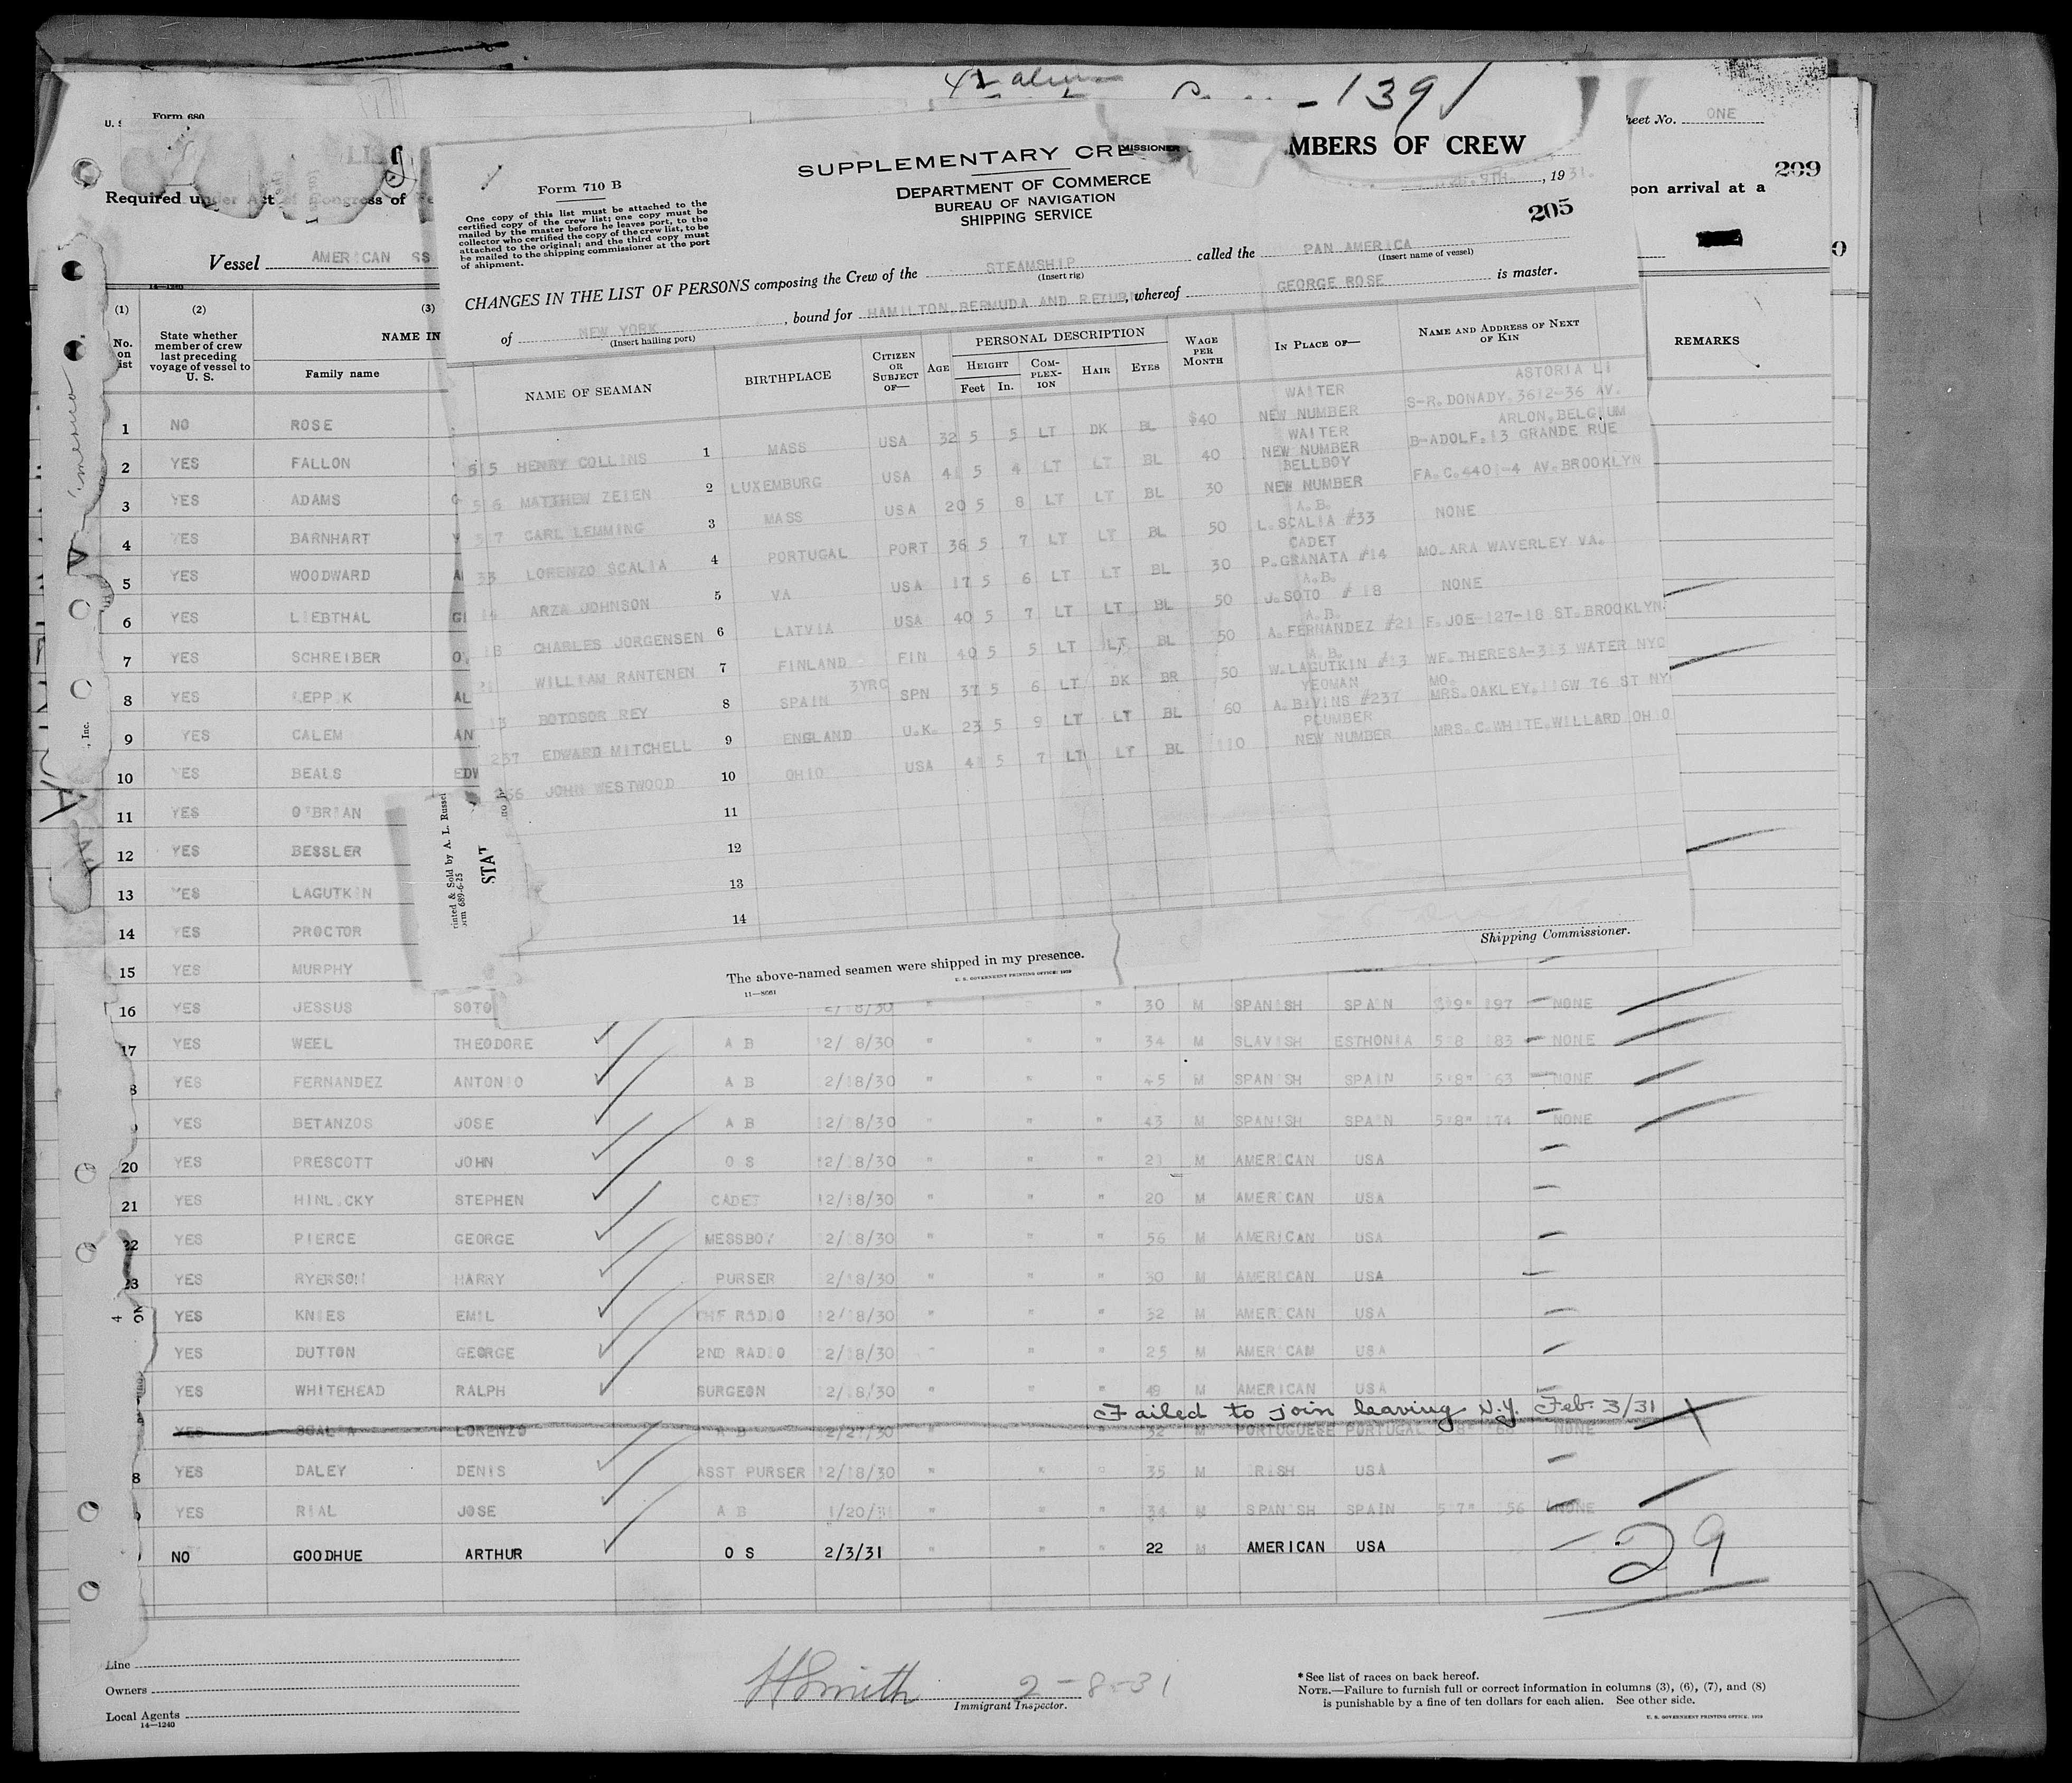 42 alien
- 139
U. S
Form 680
Sheet No. ONE
209
MBERS OF CREW
, 1931.
Required under Act of Congress of Fe
pon arrival at a
Vessel AMERICAN SS
14—1240
(1) (2) (3)
No. on list
State whether member of crew last preceding voyage of vessel to U. S.
NAME IN
Family name
REMARKS
SUPPLEMENTARY CRE
MISSIONER
Form 710 B
DEPARTMENT OF COMMERCE
BUREAU OF NAVIGATION
SHIPPING SERVICE
205
One copy of this list must be attached to the
certified copy of the crew list; one copy must be
mailed by the master before he leaves port, to the
collector who certified the copy of the crew list, to be
attached to the original; and the third copy must
be mailed to the shipping commissioner at the port
of shipment.
CHANGES IN THE LIST OF PERSONS composing the Crew of the STEAMSHIP called the PAN AMERICA
(Insert rig) (Insert name of vessel)
of NEW YORK, bound for HAMILTON, BERMUDA AND RETURN, whereof GEORGE ROSE is master.
(Insert hailing port)
NAME OF SEAMAN BIRTHPLACE CITIZEN OR SUBJECT OF— AGE PERSONAL DESCRIPTION HEIGHT Feet In. COMPLEXION HAIR EYES WAGE PER MONTH IN PLACE OF— NAME AND ADDRESS OF NEXT OF KIN
515 HENRY COLLINS 1 MASS USA 32 5 5 LT DK BL $40 WAITER NEW NUMBER S-R.DONADY.3612-36 AV. ASTORIA LI
516 MATTHEW ZEIEN 2 LUXEMBURG USA 41 5 4 LT LT BL 40 WAITER NEW NUMBER B-ADOLF.13 GRANDE RUE ARLON,BELGIUM
517 CARL LEMMING 3 MASS USA 20 5 8 LT LT BL 30 BELLBOY NEW NUMBER FA.C.4401-4 AV.BROOKLYN
33 LORENZO SCALIA 4 PORTUGAL PORT 36 5 7 LT LT BL 50 A.B. L.SCALIA #33 NONE
14 ARZA JOHNSON 5 VA USA 17 5 6 LT LT BL 30 CADET P.GRANATA #14 MO.ARA WAVERLEY VA.
18 CHARLES JORGENSEN 6 LATVIA USA 40 5 7 LT LT BL 50 A.B. J.SOTO #18 NONE
21 WILLIAM RANTENEN 7 FINLAND FIN 40 5 5 LT LT BL 50 A.B. A.FERNANDEZ #21 F.JOE-127-18 ST.BROOKLYN.
13 BOTOSOR REY 8 SPAIN 3YRC SPN 37 5 6 LT DK BR 50 A.B. W.LAGUTKIN #13 WF.THERESA-313 WATER NYC
237 EDWARD MITCHELL 9 ENGLAND U.K. 23 5 9 LT LT BL 60 YEOMAN A.BIVINS #237 MO. MRS.OAKLEY.116W 76 ST NY
266 JOHN WESTWOOD 10 OHIO USA 41 5 7 LT LT BL 110 PLUMBER NEW NUMBER MRS.C.WHITE.WILLARD OHIO
11
12
13
14
Shipping Commissioner.
The above-named seamen were shipped in my presence.
11—8661
U. S. GOVERNMENT PRINTING OFFICE: 1929
1 NO ROSE
2 YES FALLON
3 YES ADAMS
4 YES BARNHART
5 YES WOODWARD
6 YES LIEBTHAL
7 YES SCHREIBER
8 YES LEPPIK AL
9 YES CALEM AN
10 YES BEALS EDW
11 YES O'BRIAN
12 YES BESSLER
13 YES LAGUTKIN
14 YES PROCTOR
15 YES MURPHY
Printed & Sold by A. L. Russel
Form 689-6-25
STAT
, Inc.
16 YES JESSUS SOTO 12/18/30 " " " 30 M SPANISH SPAIN 5'9" 197 NONE
17 YES WEEL THEODORE A B 12/18/30 " " " 34 M SLAVISH ESTHONIA 5'8 183 NONE
8 YES FERNANDEZ ANTONIO A B 12/18/30 " " " 45 M SPANISH SPAIN 5'8" 163 NONE
YES BETANZOS JOSE A B 12/18/30 " " " 43 M SPANISH SPAIN 5'8" 174 NONE
20 YES PRESCOTT JOHN O S 12/18/30 " " " 21 M AMERICAN USA
21 YES HINLICKY STEPHEN CADET 12/18/30 " " " 20 M AMERICAN USA
22 YES PIERCE GEORGE MESSBOY 12/18/30 " " " 56 M AMERICAN USA
23 YES RYERSON HARRY PURSER 12/18/30 " " " 30 M AMERICAN USA
4 YES KNIES EMIL CHF RADIO 12/18/30 " " " 32 M AMERICAN USA
YES DUTTON GEORGE 2ND RADIO 12/18/30 " " " 25 M AMERICAN USA
YES WHITEHEAD RALPH SURGEON 12/18/30 " " " 49 M AMERICAN USA
Failed to join leaving N.Y. Feb. 3/31
YES SCALIA LORENZO A B 12/27/30 " " 32 M PORTUGUESE PORTUGAL 5'8" 168 NONE
8 YES DALEY DENIS ASST PURSER 12/18/30 " " " 35 M IRISH USA
YES RIAL JOSE A B 1/20/31 " " " 34 M SPANISH SPAIN 5'7" 156 NONE
NO GOODHUE ARTHUR O S 2/3/31 " " " 22 M AMERICAN USA
29
Line
Owners
Local Agents
14—1240
H Smith 2-8-31
Immigrant Inspector.
* See list of races on back hereof.
NOTE.—Failure to furnish full or correct information in columns (3), (6), (7), and (8)
is punishable by a fine of ten dollars for each alien. See other side.
U. S. GOVERNMENT PRINTING OFFICE: 1929